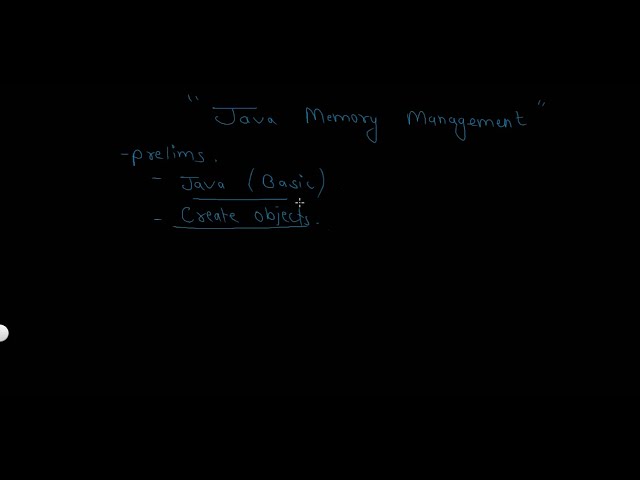 " Java Memory Management "
- prelims.
- Java (Basic)
- Create objects.